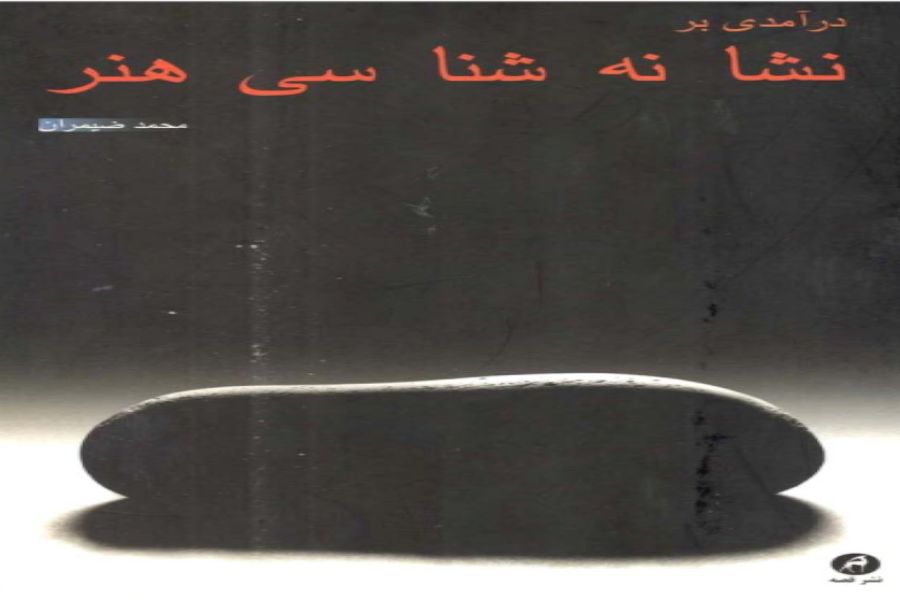 درآمدی بر
نشانه شناسی هنر
محمد ضیمران
نشر قصه